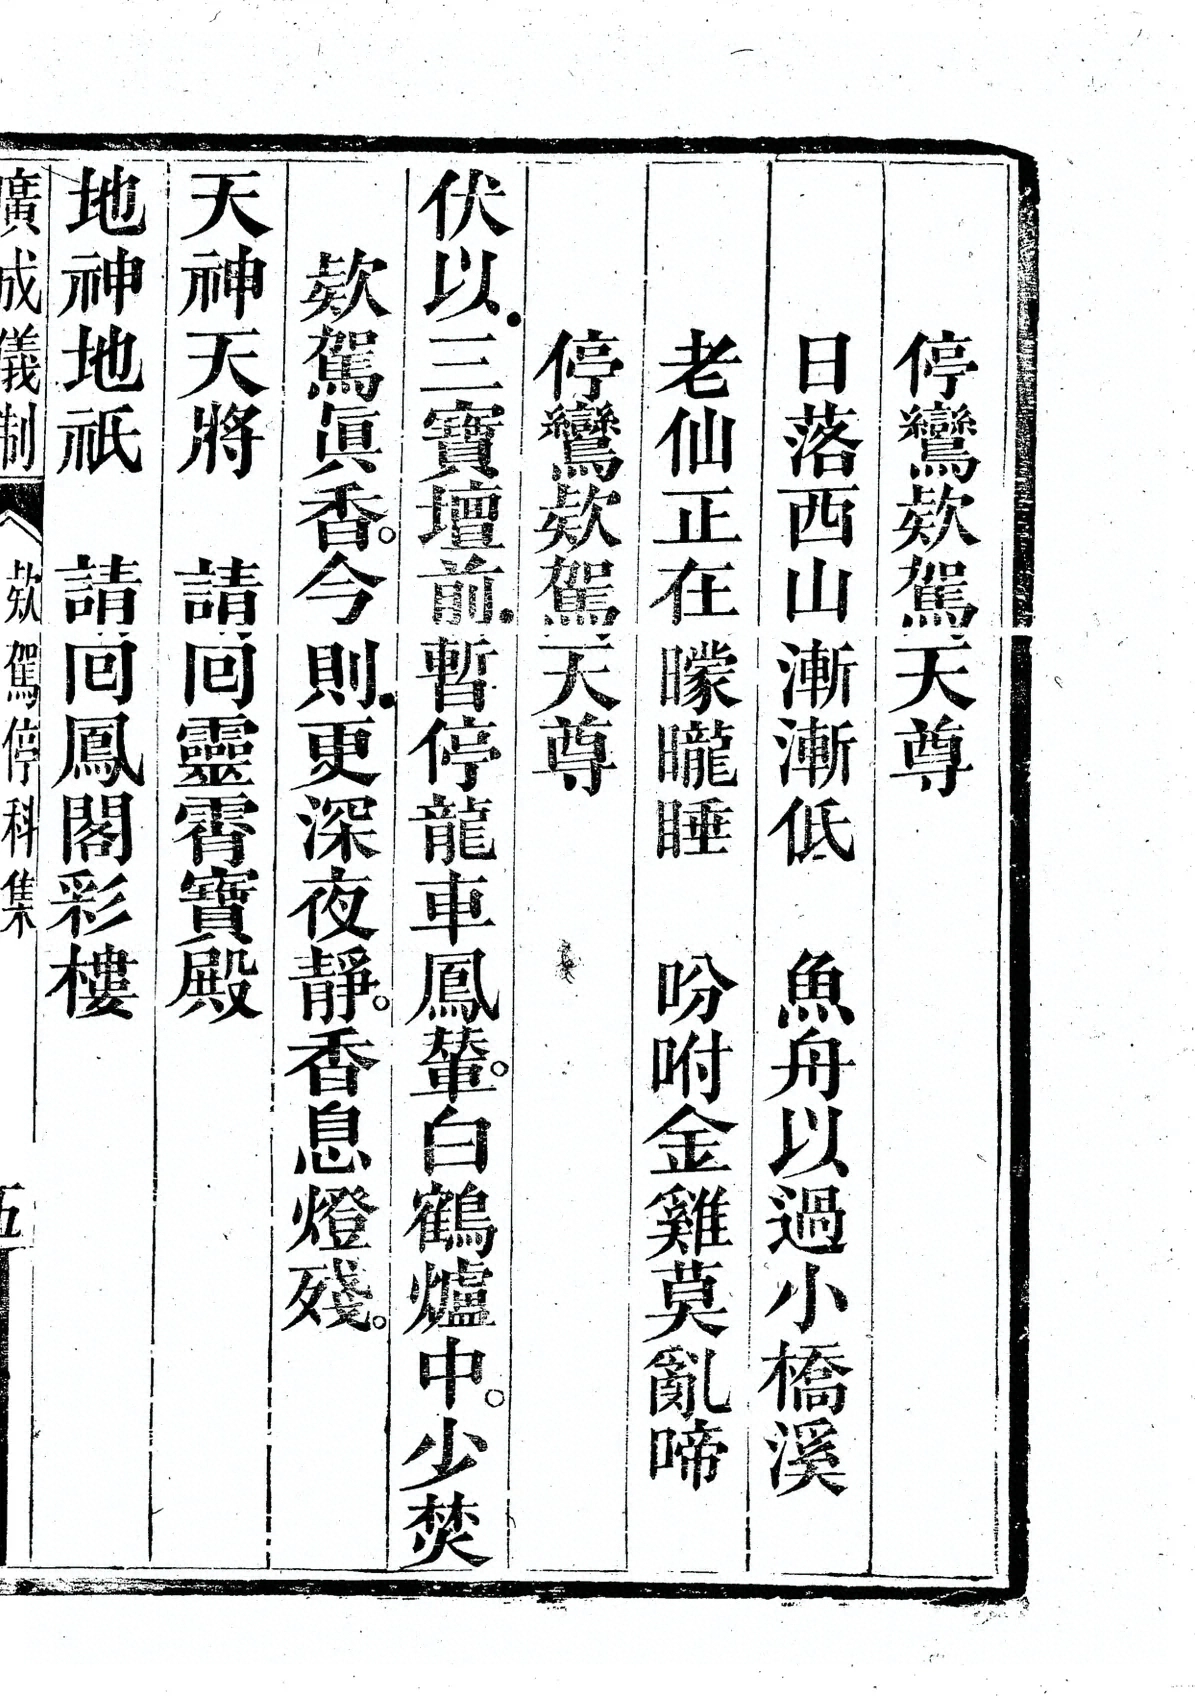 停鸞欵駕天尊
日落西山漸漸低　魚舟以過小橋溪
老仙正在曚曨睡　吩咐金雞莫亂啼
停鸞欵駕天尊
伏以.三寶壇前.暫停龍車鳳輦。白鶴爐中。少焚
欵駕眞香。今則.更深夜靜。香息燈殘。
天神天將　請囘靈霄寶殿
地神地祇　請囘鳳閣彩樓
廣成儀制　欵駕停科集　五